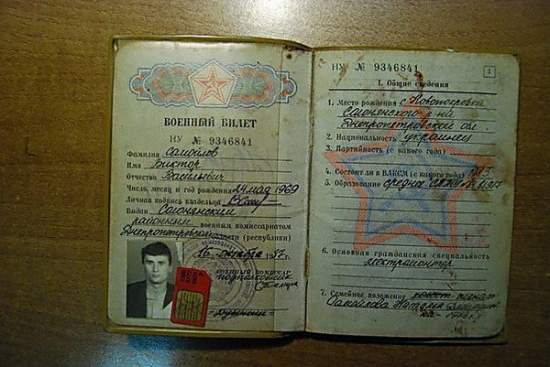 ВОЕННЫЙ БИЛЕТ
НУ № 9346841
Фамилия Самойлов
Имя Виктор
Отчество Васильевич
Число, месяц и год рождения 24 мая 1969
Личная подпись владельца
Выдан
районным военным комиссариатом
Днепропетровской области (республики)
16 октября 1987 г.
НУ № 9346841
1
I. Общие сведения
1. Место рождения с.
Днепропетровской обл.
2. Национальность украинец
3. Партийность (с какого года)
4. Состоит ли в ВЛКСМ (с какого года) 1983
5. Образование среднее
6. Основная гражданская специальность
электромонтер
7. Семейное положение холост женат
Самойлова Наталия